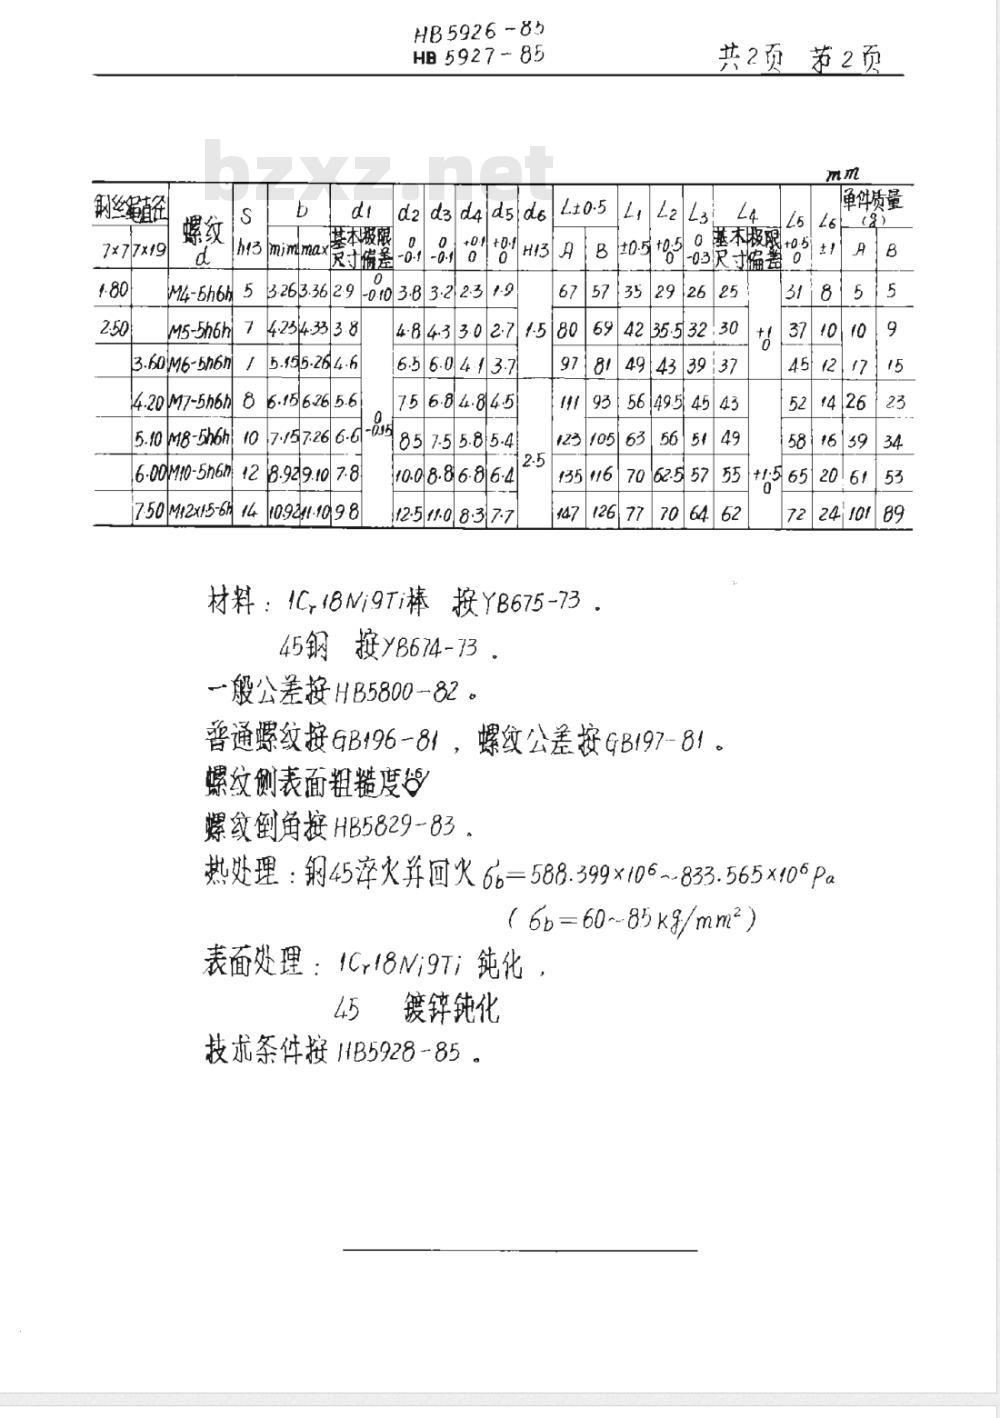 HB 5926-85
HB 5927-85
共2页 第2页
bzxz.net
mm
钢丝绳直径 螺纹 S b d1 d2 d3 d4 d5 d6 L±0.5 L1 L2 L3 L4 L5 L6 单件质量(g)
7×7 7×19 d h13 min max 基本尺寸 极限偏差 0 -0.1 0 -0.1 +0.1 0 +0.1 0 H13 A B ±0.5 +0.5 0 0 -0.3 基本尺寸 极限偏差 +0.5 0 ±1 A B
1.80 M4-5h6h 5 3.26 3.36 2.9 0 -0.10 3.8 3.2 2.3 1.9 67 57 35 29 26 25 31 8 5 5
2.50 M5-5h6h 7 4.23 4.33 3.8 4.8 4.3 3.0 2.7 1.5 80 69 42 35.5 32 30 +1 0 37 10 10 9
3.60 M6-5h6h 5.15 5.26 4.6 6.5 6.0 4.1 3.7 97 81 49 43 39 37 45 12 17 15
4.20 M7-5h6h 8 6.15 6.26 5.6 7.5 6.8 4.8 4.5 111 93 56 49.5 45 43 52 14 26 23
5.10 M8-5h6h 10 7.15 7.26 6.6 0 -0.15 8.5 7.5 5.8 5.4 123 105 63 56 51 49 58 16 39 34
6.00 M10-5h6h 12 8.92 9.10 7.8 10.0 8.8 6.8 6.4 2.5 135 116 70 62.5 57 55 +1.5 0 65 20 61 53
7.50 M12×1.5-6h 14 10.92 11.10 9.8 12.5 11.0 8.3 7.7 147 126 77 70 64 62 72 24 101 89
材料：1Cr18Ni9Ti棒 按YB675-73.
45钢 按YB674-73.
一般公差按HB5800-82。
普通螺纹按GB196-81，螺纹公差按GB197-81。
螺纹侧表面粗糙度1.6
螺纹倒角按HB5829-83.
热处理：钢45淬火并回火 σb=588.399×10⁶~833.565×10⁶Pa
(σb=60~85kg/mm²)
表面处理：1Cr18Ni9Ti 钝化，
45 镀锌钝化
技术条件按HB5928-85。